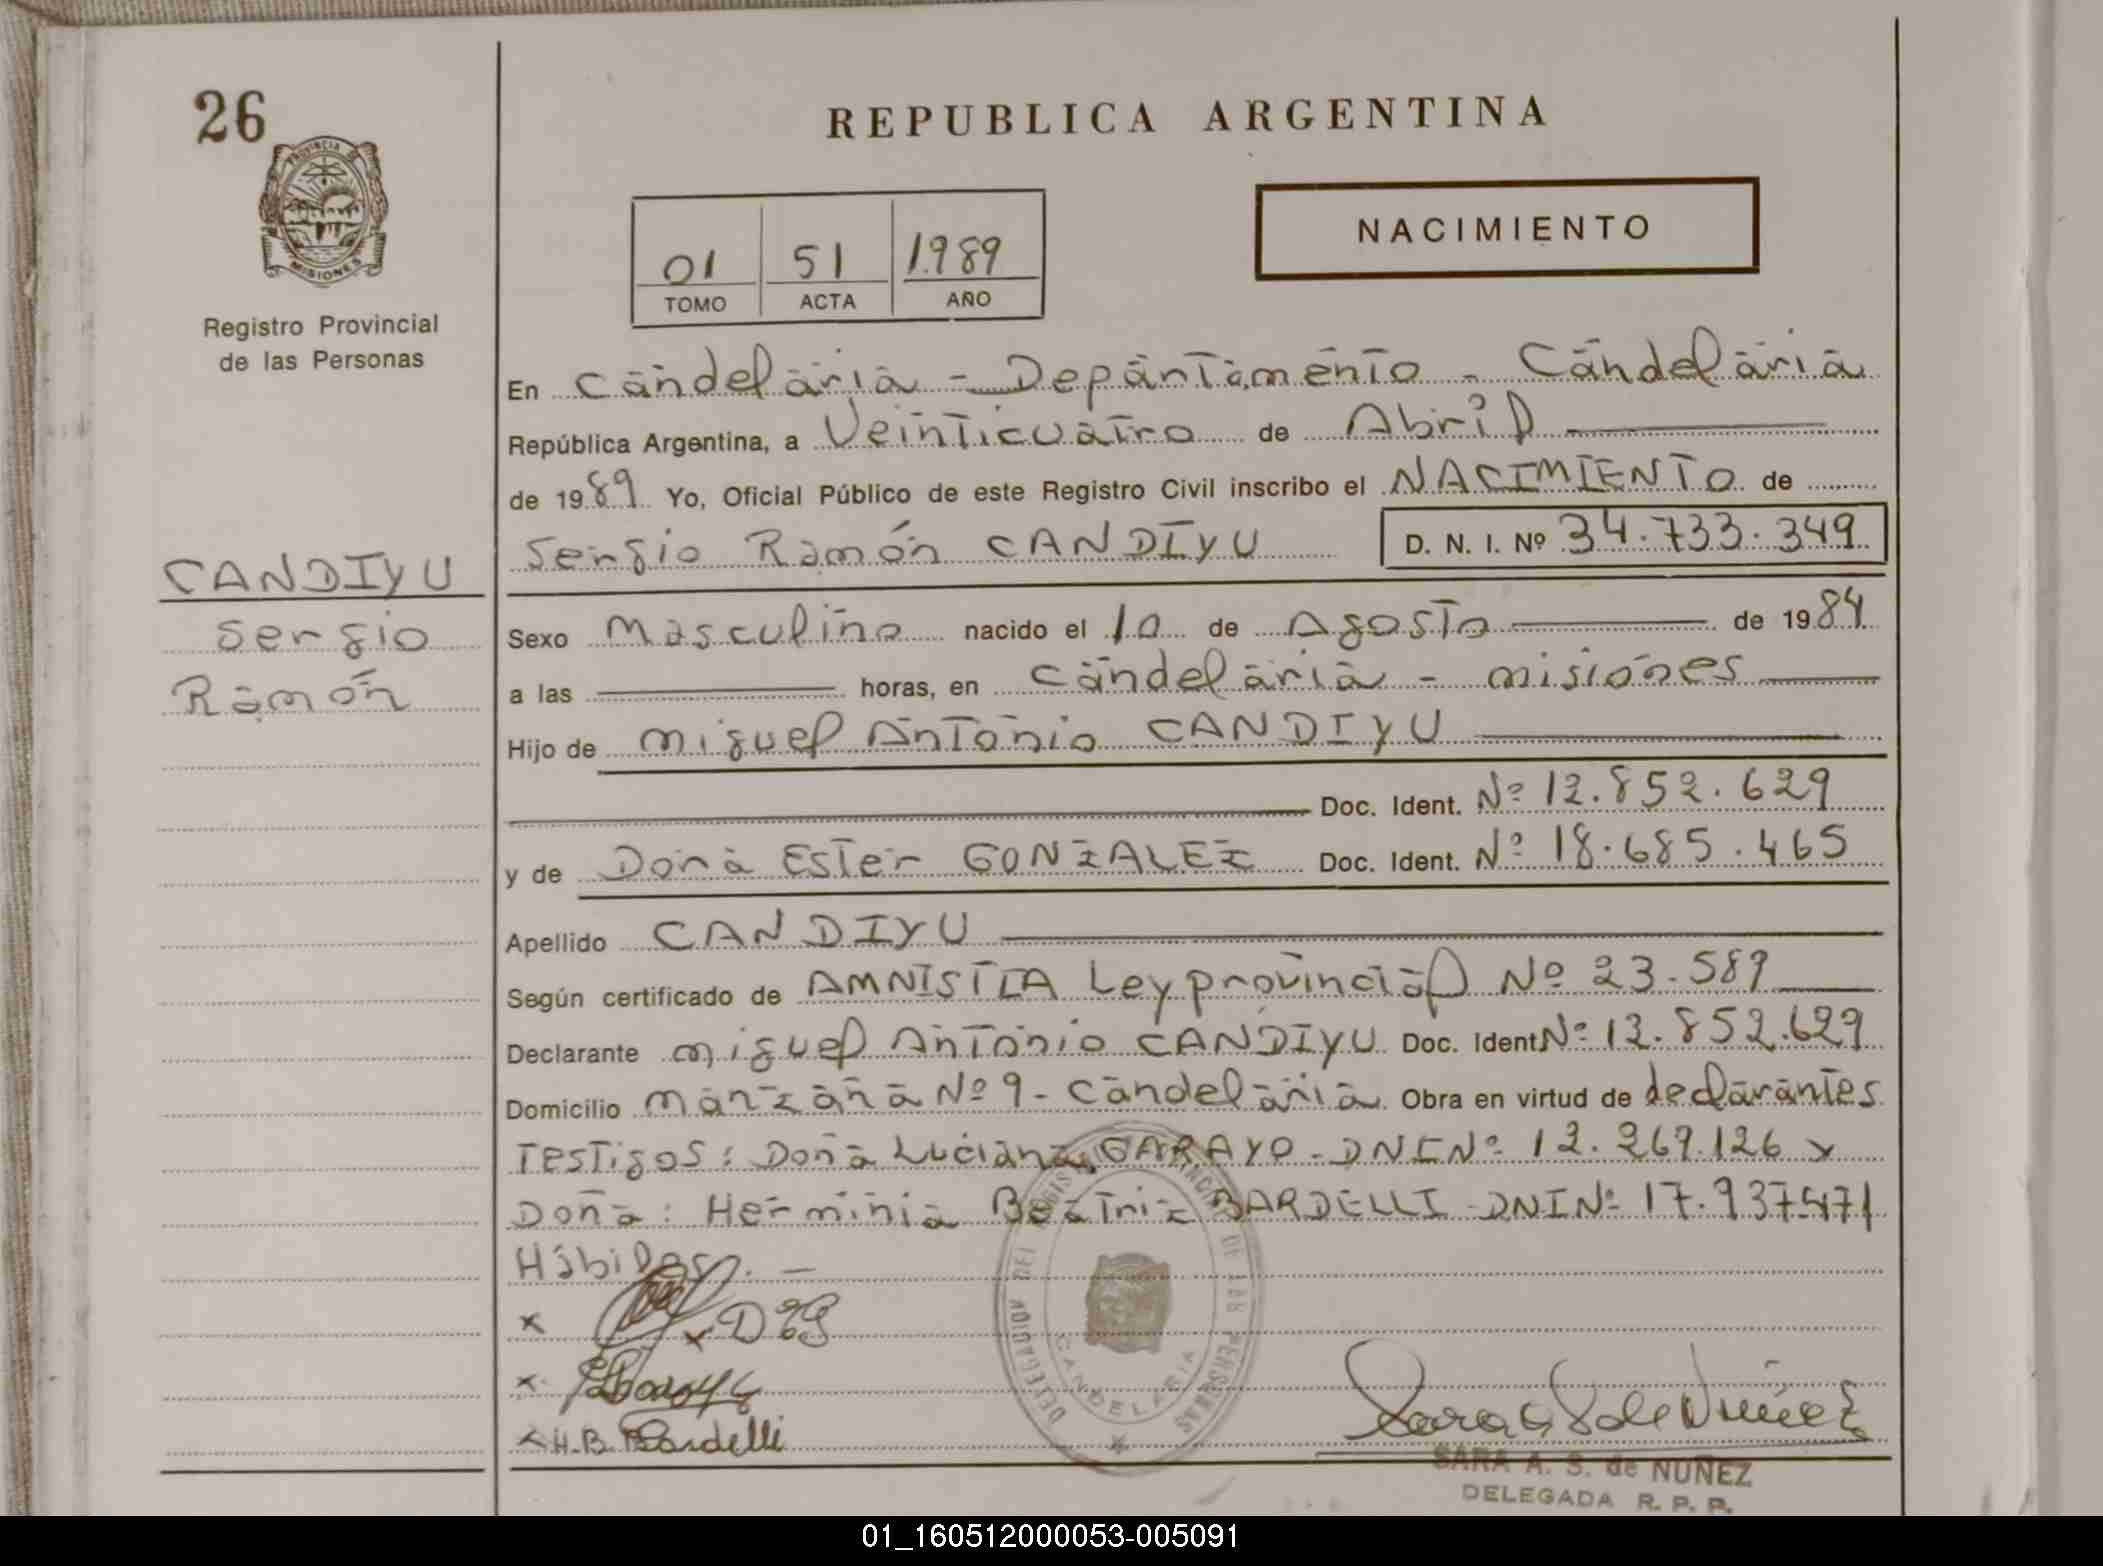 26
PROVINCIA DE
MISIONES
Registro Provincial
de las Personas
CANDIYU
Sergio
Ramón
REPUBLICA ARGENTINA
01 51 1.989
TOMO ACTA AÑO
NACIMIENTO
En Candelaria - Departamento - Candelaria
República Argentina, a Veinticuatro de Abril
de 1989 Yo, Oficial Público de este Registro Civil inscribo el NACIMIENTO de
Sergio Ramón CANDIYU D. N. I. Nº 34.733.349
Sexo Masculino nacido el 10 de Agosto de 1984
a las horas, en Candelaria - Misiones
Hijo de Miguel Antonio CANDIYU
Doc. Ident. Nº 12.852.629
y de Dona Ester GONZALEZ Doc. Ident. Nº 18.685.465
Apellido CANDIYU
Según certificado de AMNISTIA Ley provincial Nº 23.589
Declarante Miguel Antonio CANDIYU Doc. Ident Nº 12.852.629
Domicilio Manzana Nº 9 - Candelaria Obra en virtud de declarantes
Testigos: Doña Luciana GARAYO - DNI Nº 12.269.126 y
Doña: Herminia Beatriz BARDELLI - DNI Nº 17.937.471
Hábiles. —
x
x
x H.B. Bardelli
CANDELARIA
SARA A. S. de NUÑEZ
DELEGADA R. P. P.
01_160512000053-005091